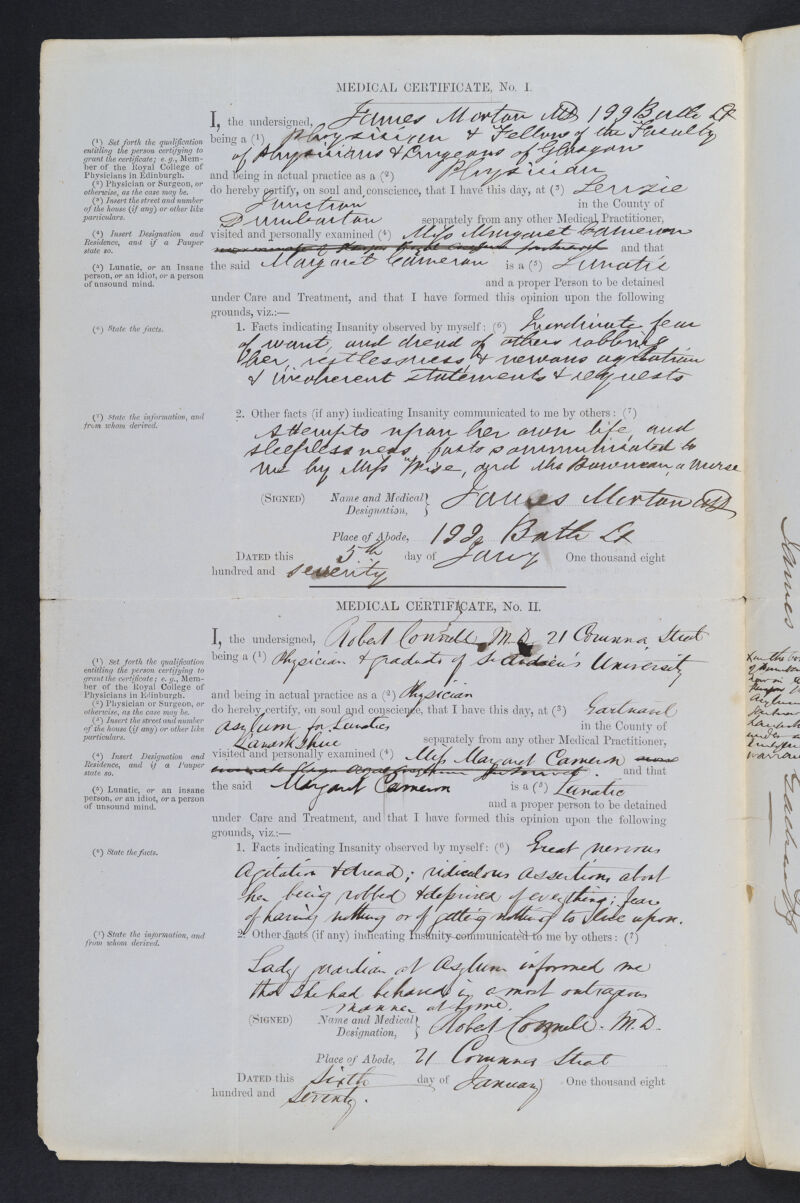 MEDICAL CERTIFICATE, No. I.
I, the undersigned, James Morton MD 199 Bath St
being a (1) Physician & Fellow of the Faculty
of Physicians & Surgeons of Glasgow
and being in actual practice as a (2) Physician
do hereby certify, on soul and conscience, that I have this day, at (3) Lenzie
Junction in the County of
Dumbarton separately from any other Medical Practitioner,
visited and personally examined (4) Miss Margaret Cameron
and that
the said Margaret Cameron is a (5) Lunatic
and a proper Person to be detained
under Care and Treatment, and that I have formed this opinion upon the following
grounds, viz.:—
1. Facts indicating Insanity observed by myself: (6) Inordinate fear
of want, and dread of others robbing
her, restlessness & nervous agitation
& incoherent statements & requests
2. Other facts (if any) indicating Insanity communicated to me by others: (7)
Attempts upon her own life, and
sleeplessness, facts communicated to
me by Miss Wise, and Mrs Bowman a nurse
(SIGNED) Name and Medical Designation, James Morton MD
Place of Abode, 199 Bath St
DATED this 5th day of Jany One thousand eight
hundred and seventy
(1) Set forth the qualification
entitling the person certifying to
grant the certificate; e.g., Mem-
ber of the Royal College of
Physicians in Edinburgh.
(2) Physician or Surgeon, or
otherwise, as the case may be.
(3) Insert the street and number
of the house (if any) or other like
particulars.
(4) Insert Designation and
Residence, and if a Pauper
state so.
(5) Lunatic, or an Insane
person, or an idiot, or a person
of unsound mind.
(6) State the facts.
(7) State the information, and
from whom derived.
MEDICAL CERTIFICATE, No. II.
I, the undersigned, Robert M.D. 21 Corunna Street
being a (1) Physician & graduate of St Andrew's University
and being in actual practice as a (2) Physician
do hereby certify, on soul and conscience, that I have this day, at (3) Gartnavel
Asylum for Lunatics in the County of
Lanarkshire separately from any other Medical Practitioner,
visited and personally examined (4) Miss Margaret Cameron
and that
the said Margaret Cameron is a (5) Lunatic
and a proper person to be detained
under Care and Treatment, and that I have formed this opinion upon the following
grounds, viz.:—
1. Facts indicating Insanity observed by myself: (6) Great nervous
agitation & dread; ridiculous assertions about
her being robbed & deprived of everything; fear
of having nothing or of getting nothing to live upon.
2. Other facts (if any) indicating Insanity communicated to me by others: (7)
Lady guardian at Asylum informed me
that she had behaved in a most outrageous
manner at time.
(SIGNED) Name and Medical Designation, Robert M.D.
Place of Abode, 21 Corunna Street
DATED this Sixth day of January One thousand eight
hundred and Seventy.
(1) Set forth the qualification
entitling the person certifying to
grant the certificate; e.g., Mem-
ber of the Royal College of
Physicians in Edinburgh.
(2) Physician or Surgeon, or
otherwise, as the case may be.
(3) Insert the street and number
of the house (if any) or other like
particulars.
(4) Insert Designation and
Residence, and if a Pauper
state so.
(5) Lunatic, or an insane
person, or an idiot, or a person
of unsound mind.
(6) State the facts.
(7) State the information, and
from whom derived.
James